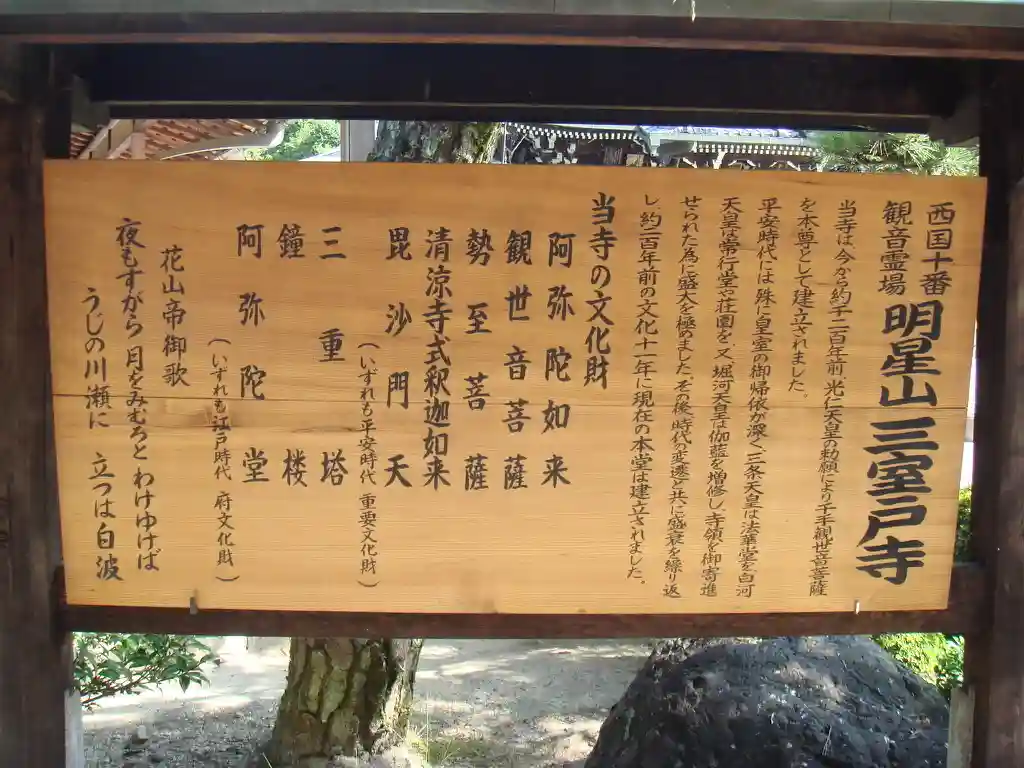 西国十番
観音霊場
明星山三室戸寺
当寺は、今から約千二百年前、光仁天皇の勅願により千手観世音菩薩
を本尊として建立されました。
平安時代には、殊に皇室の御帰依が深く、三条天皇は法華堂を、白河
天皇は常行堂や荘園を、又、堀河天皇は伽藍を増修し、寺領を御寄進
せられた為に盛大を極めました。その後、時代の変遷と共に盛衰を繰り返
し、約二百年前の文化十一年に現在の本堂は建立されました。
当寺の文化財
阿弥陀如来
観世音菩薩
勢至菩薩
清涼寺式釈迦如来
毘沙門天
(いずれも平安時代 重要文化財)
三重塔
鐘楼
阿弥陀堂
(いずれも江戸時代 府文化財)
花山帝御歌
夜もすがら 月をみむろと わけゆけば
うじの川瀬に 立つは白波